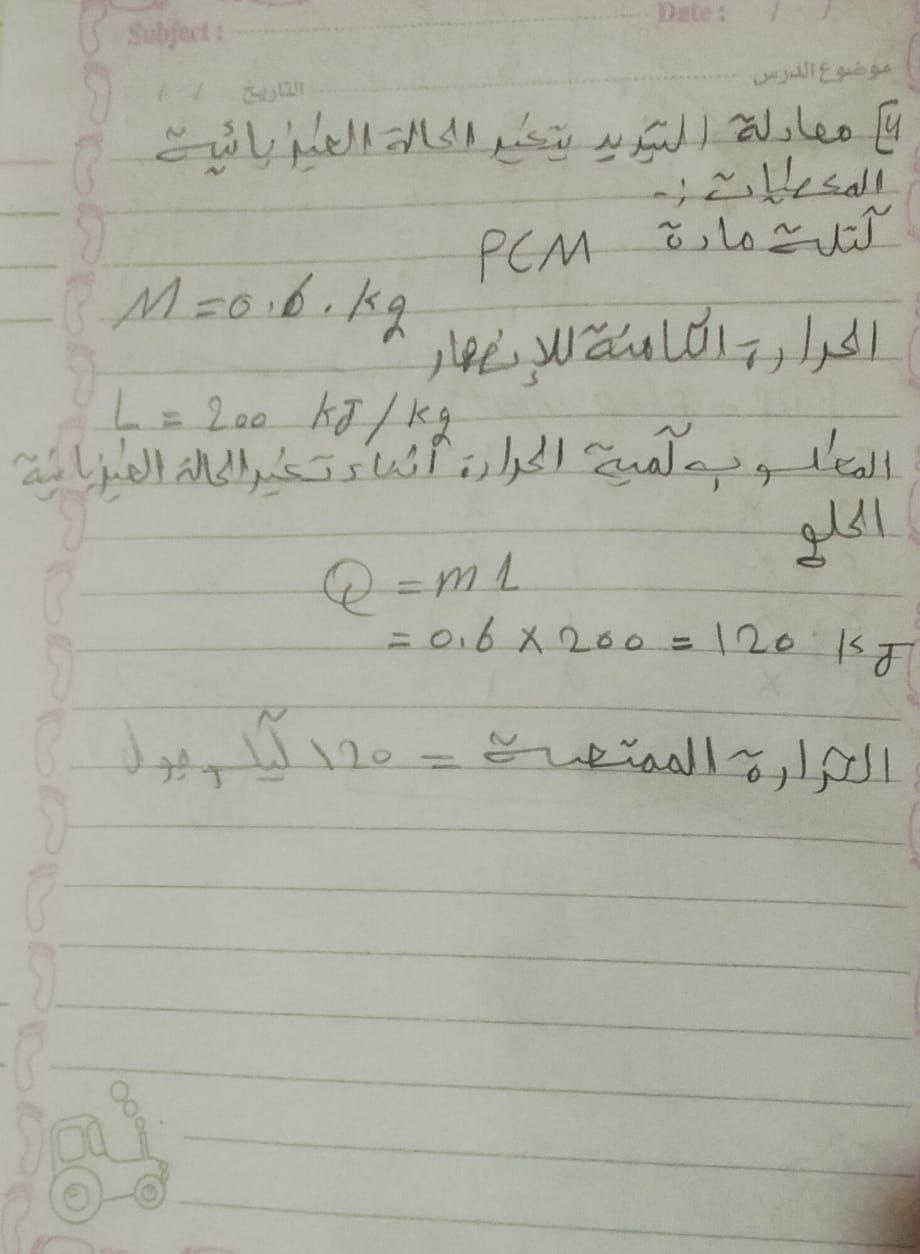 Subject : Date : / /
موضوع الدرس التاريخ / /
4] معادلة التبريد بتغير الحالة الفيزيائية
المعطيات :-
كتلة مادة PCM
M = 0.6 . kg
الحرارة الكامنة للإنصهار
L = 200 kJ/kg
المطلوب كمية الحرارة أثناء تغير الحالة الفيزيائية
الحل
Q = mL
= 0.6 x 200 = 120 KJ
الحرارة الممتصة = 120 كيلو جول